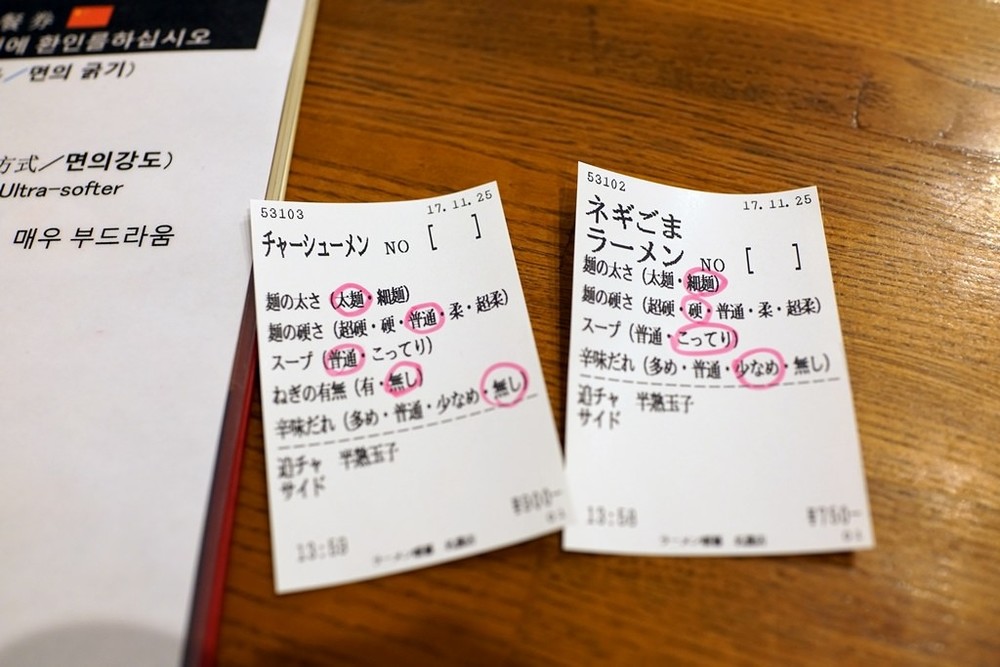 餐券
에 환인를하십시오
／면의 굵기)
方式／면의강도)
Ultra-softer
매우 부드라움
53103
17.11.25
チャーシューメン NO [ ]
麺の太さ (太麺・細麺)
麺の硬さ (超硬・硬・普通・柔・超柔)
スープ (普通・こってり)
ねぎの有無 (有・無し)
辛味だれ (多め・普通・少なめ・無し)
追チャ 半熟玉子
サイド
¥900-
13:59
ラーメン
53102
17.11.25
ネギごま
ラーメン NO [ ]
麺の太さ (太麺・細麺)
麺の硬さ (超硬・硬・普通・柔・超柔)
スープ (普通・こってり)
辛味だれ (多め・普通・少なめ・無し)
追チャ 半熟玉子
サイド
13:58
¥750-
ラーメン